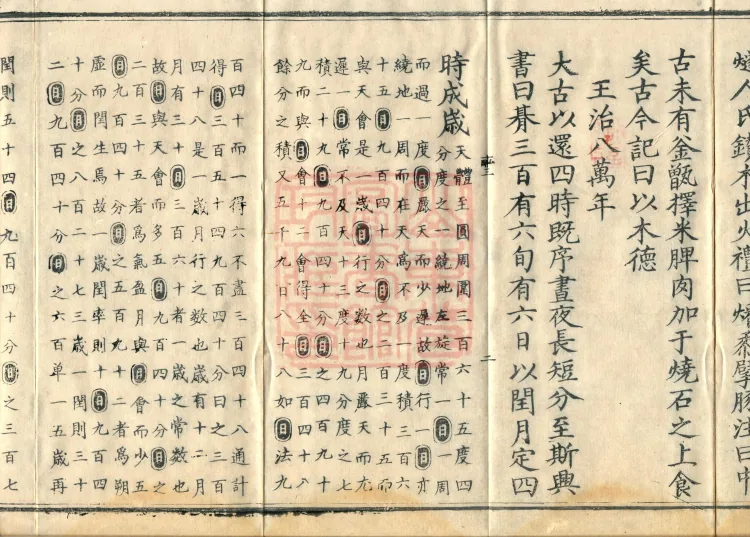 燧人氏鑽木出火禮曰燔黍擘豚注曰中
古未有釜甑擇米脾肉加于燒石之上食
矣古今記曰以木德
王治八萬年
大古以還四時既序晝夜長短分至斯興
書曰朞三百有六旬有六日以閏月定四
時成歲
天體至圓周圍三百六十五度四
分度之一繞地左旋常一日一周
而過一度日麗天而少遲故日行一日亦
繞地一周而在天爲不及一度積三百六
十五日九百四十分日之二百三十五而
與天會是一歲日行之數也月麗天而尤
遲一日常不及天十三度十九分度之七
積二十九日九百四十分日之四百九十
九而與日會十二會得全日三百四十八
餘分之積又五千九百八十八如日法九
百四十而一得六不盡三百四十八通計
得日三百五十四九百四十分日之三百
四十八是一歲月行之數也歲有十二月
月有三十日三百六十者一歲之常數也
故日與天會而多五日九百四十分日之
二百三十五者爲氣盈月與日會而少五
日九百四十分日之五百九十二者爲朔
虛而閏生焉故一歲閏率則十日九百四
十分日之八百二十七三歲一閏則三十
二日九百四十分日之六百單一五歲再
閏則五十四日九百四十分日之三百七